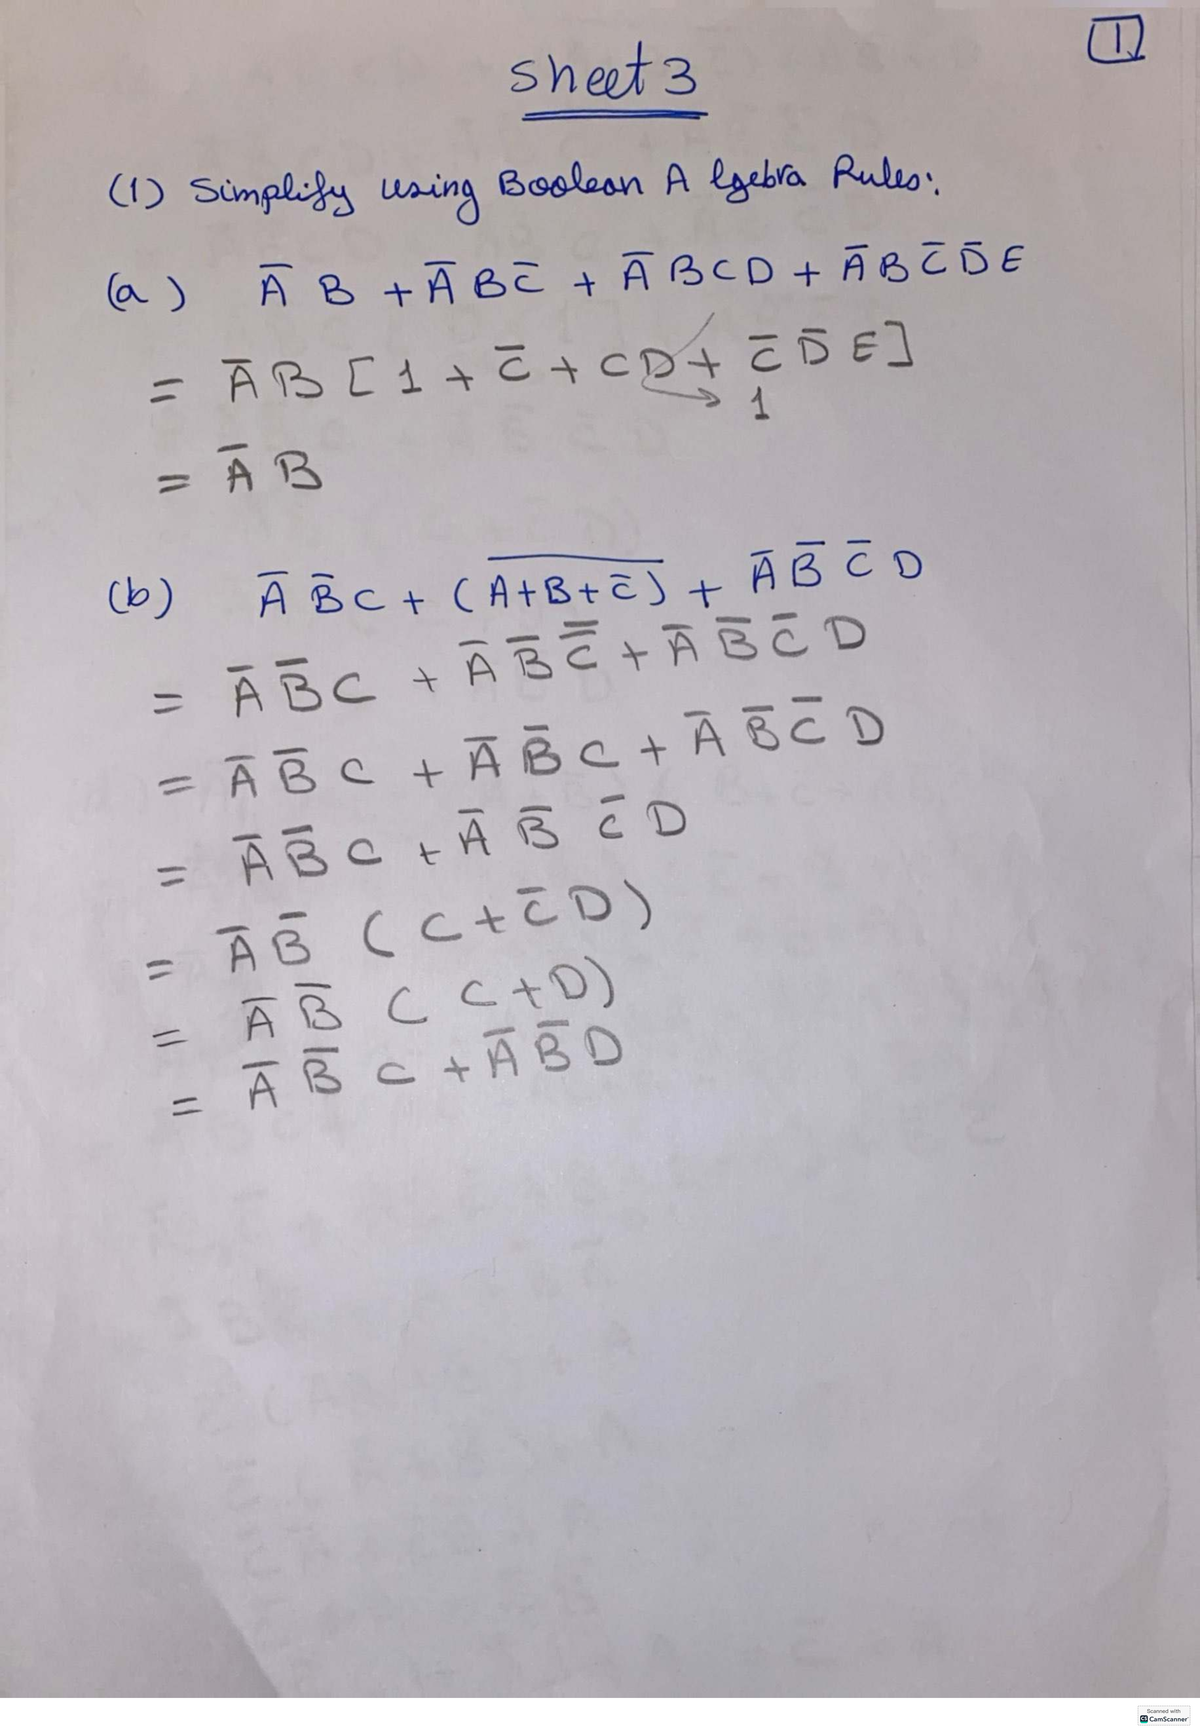 1
Sheet 3
(1) Simplify using Boolean Algebra Rules:
(a) A̅ B + A̅ B C̅ + A̅ B C D + A̅ B C̅ D̅ E
= A̅ B [ 1 + C̅ + C D + C̅ D̅ E ]
1
= A̅ B
(b) A̅ B̅ C + (A̅+̅B̅+̅C̅̅) + A̅ B̅ C̅ D
= A̅ B̅ C + A̅ B̅ C̿ + A̅ B̅ C̅ D
= A̅ B̅ C + A̅ B̅ C + A̅ B̅ C̅ D
= A̅ B̅ C + A̅ B̅ C̅ D
= A̅ B̅ ( C + C̅ D )
= A̅ B̅ ( C + D )
= A̅ B̅ C + A̅ B̅ D
Scanned with
CS CamScanner